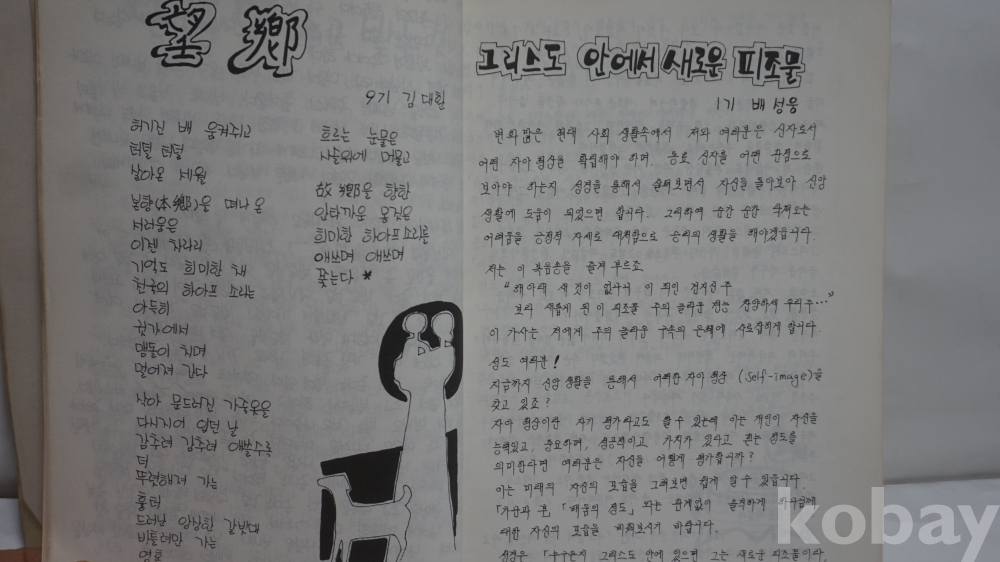 望鄕
9기 김대환
허기진 배 움켜쥐고
터덜 터덜
살아온 세월
본향(本鄕)을 떠나온
서러움은
이젠 차라리
기억도 희미한 채
천국의 하아프 소리는
아득히
귓가에서
맴돌이 치며
멀어져 간다
삭아 문드러진 가죽옷을
다시 지어 입던 날
감추려 감추려 애쓸수록
더
뚜렷해져 가는
흉터
드러난 앙상한 갈빗대
바튼 가는
영혼
흐르는 눈물은
사슬위에 머물고
故鄕을 향한
안타까운 몸짓은
희미한 하아프소리를
애쓰며 애쓰며
쫓는다 *
그리스도 안에서 새로운 피조물
1기 배성웅
변화많은 현대 사회 생활속에서 저와 여러분은 신자로서
어떤 자아형상을 확립해야 하며, 동료 신자를 어떤 관점으로
보아야 하는지 성경을 통해서 살펴보면서 자신을 돌아보아 신앙
생활에 도움이 되었으면 합니다. 그리하여 순간 순간
어려움을 긍정적 자세로 대처함으로 승리의 생활을 해야겠습니다.
저는 이 복음송을 즐겨 부르죠
"해아래 새 것이 없나니 이 죄인 건지신 주
보라 새롭게 된 이 피조물 주의 놀라운 권능 찬양하세 우리 주…"
이 가사는 저에게 주의 놀라운 구속의 은혜에 사로잡히게 합니다.
성도 여러분!
지금까지 신앙생활을 통해서 어떠한 자아형상 (Self-image)을
갖고 있죠?
자아 형상이란 자기 평가라고도 할 수 있는데 이는 개인이 자신을
능력있고, 중요하며, 성공적이고 가치가 있다고 믿는 정도를
의미한다면 여러분은 자신을 어떻게 평가합니까?
이는 미래의 자신의 모습을 그려보면 쉽게 알 수 있습니다.
「가문과 돈」「배움의 정도」와는 관계없이 솔직하게 하나님께
대한 자신의 모습을 비춰보시기 바랍니다.
성경은 「누구든지 그리스도 안에 있으면 그는 새로운 피조물이라.
kobay